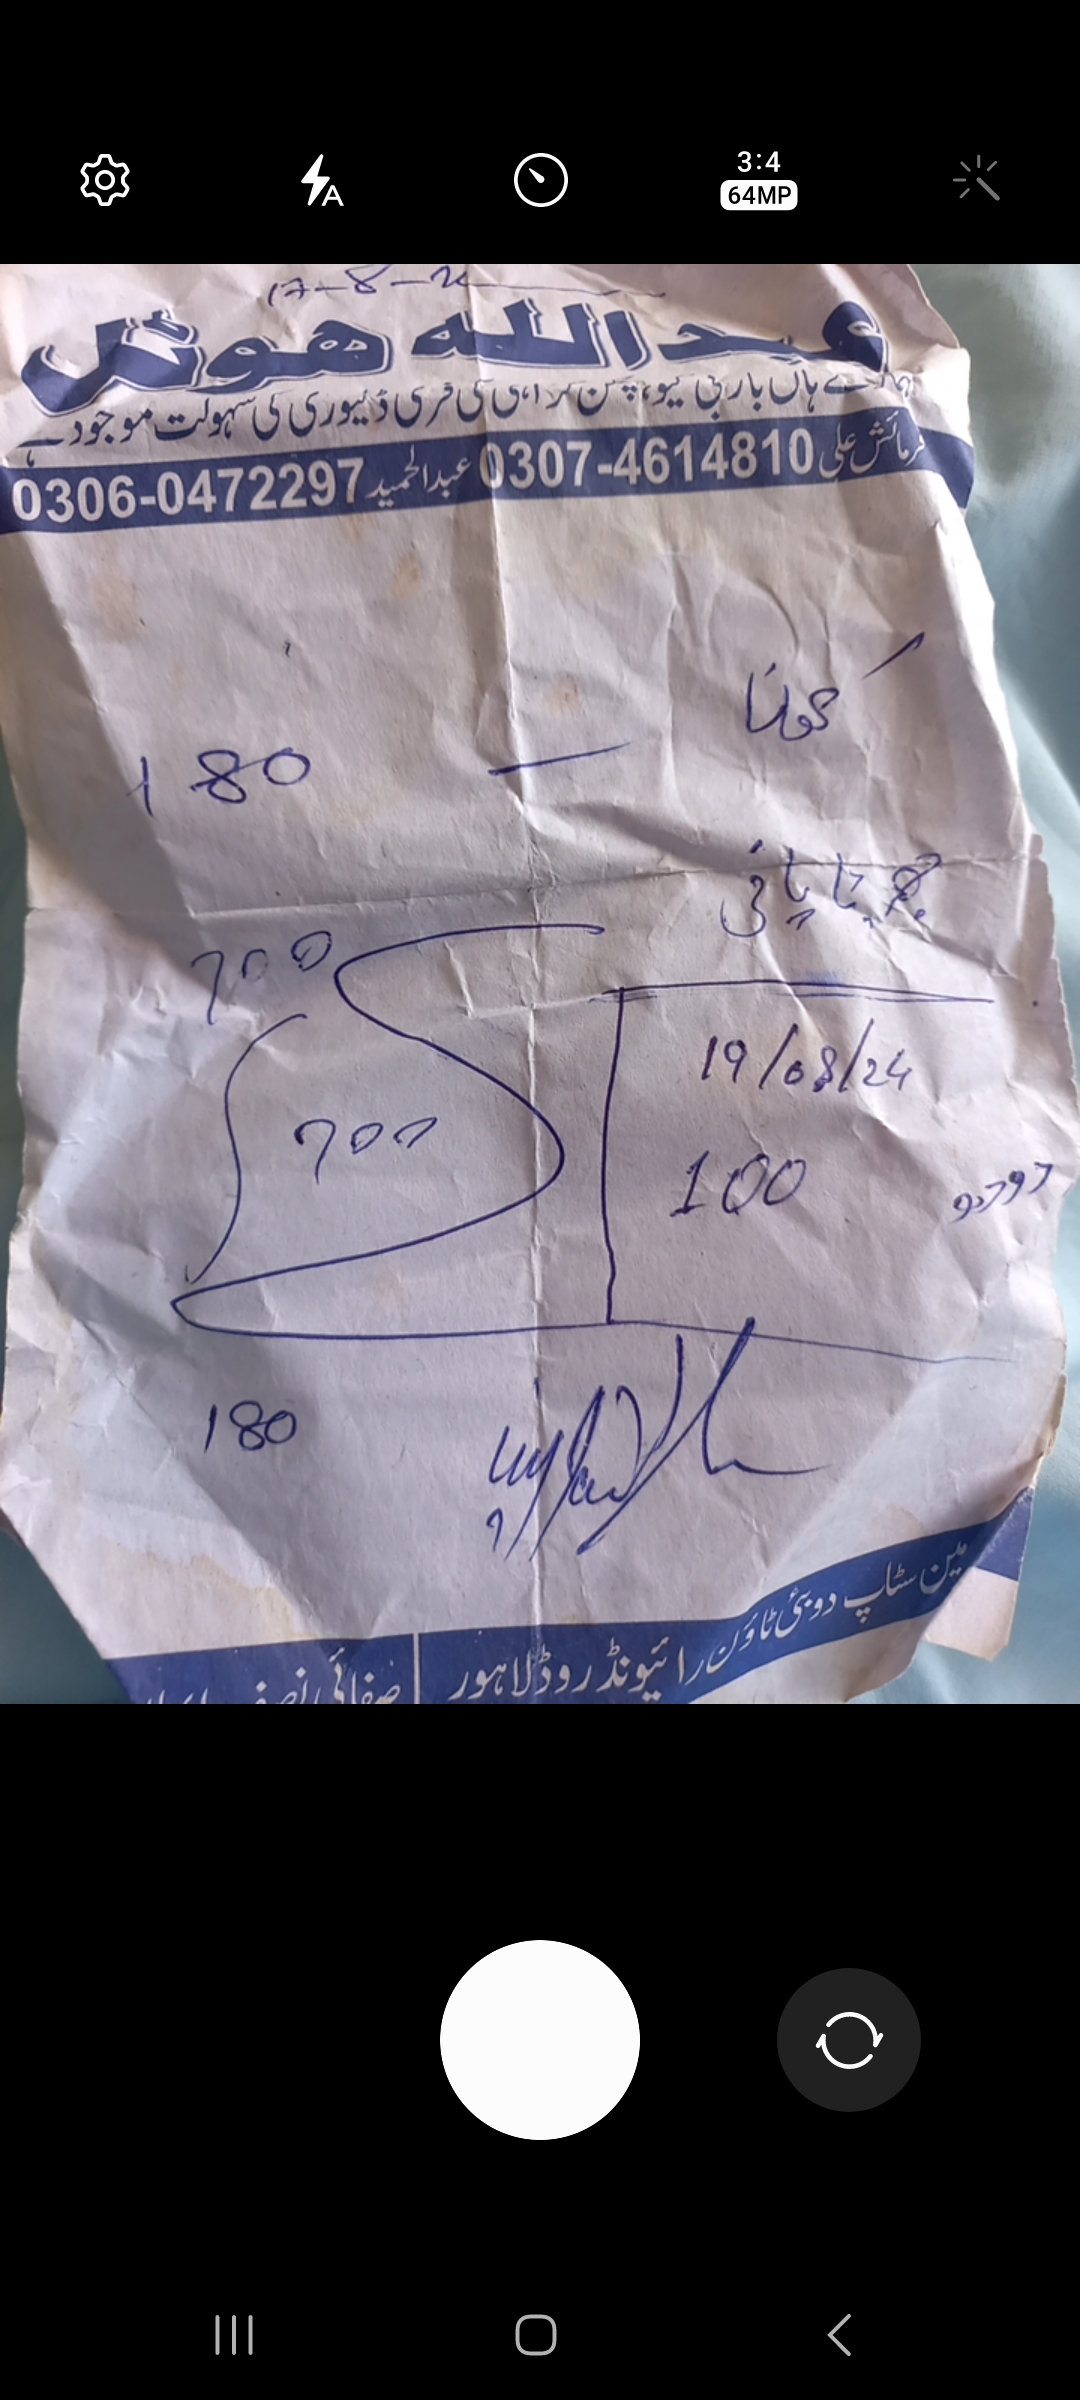 3:4
64MP
17-8-2
عبداللہ ہوٹل
ہمارے ہاں باربی کیو، چکن کڑاہی کی فری ڈلیوری کی سہولت موجود ہے
فرمائش علی 0307-4614810 عبدالحمید 0306-0472297
180 —
بقایا پانی
700
19/08/24
700
100
180
مین سٹاپ دوبئی ٹاؤن رائیونڈ روڈ لاہور
صفائی نصف